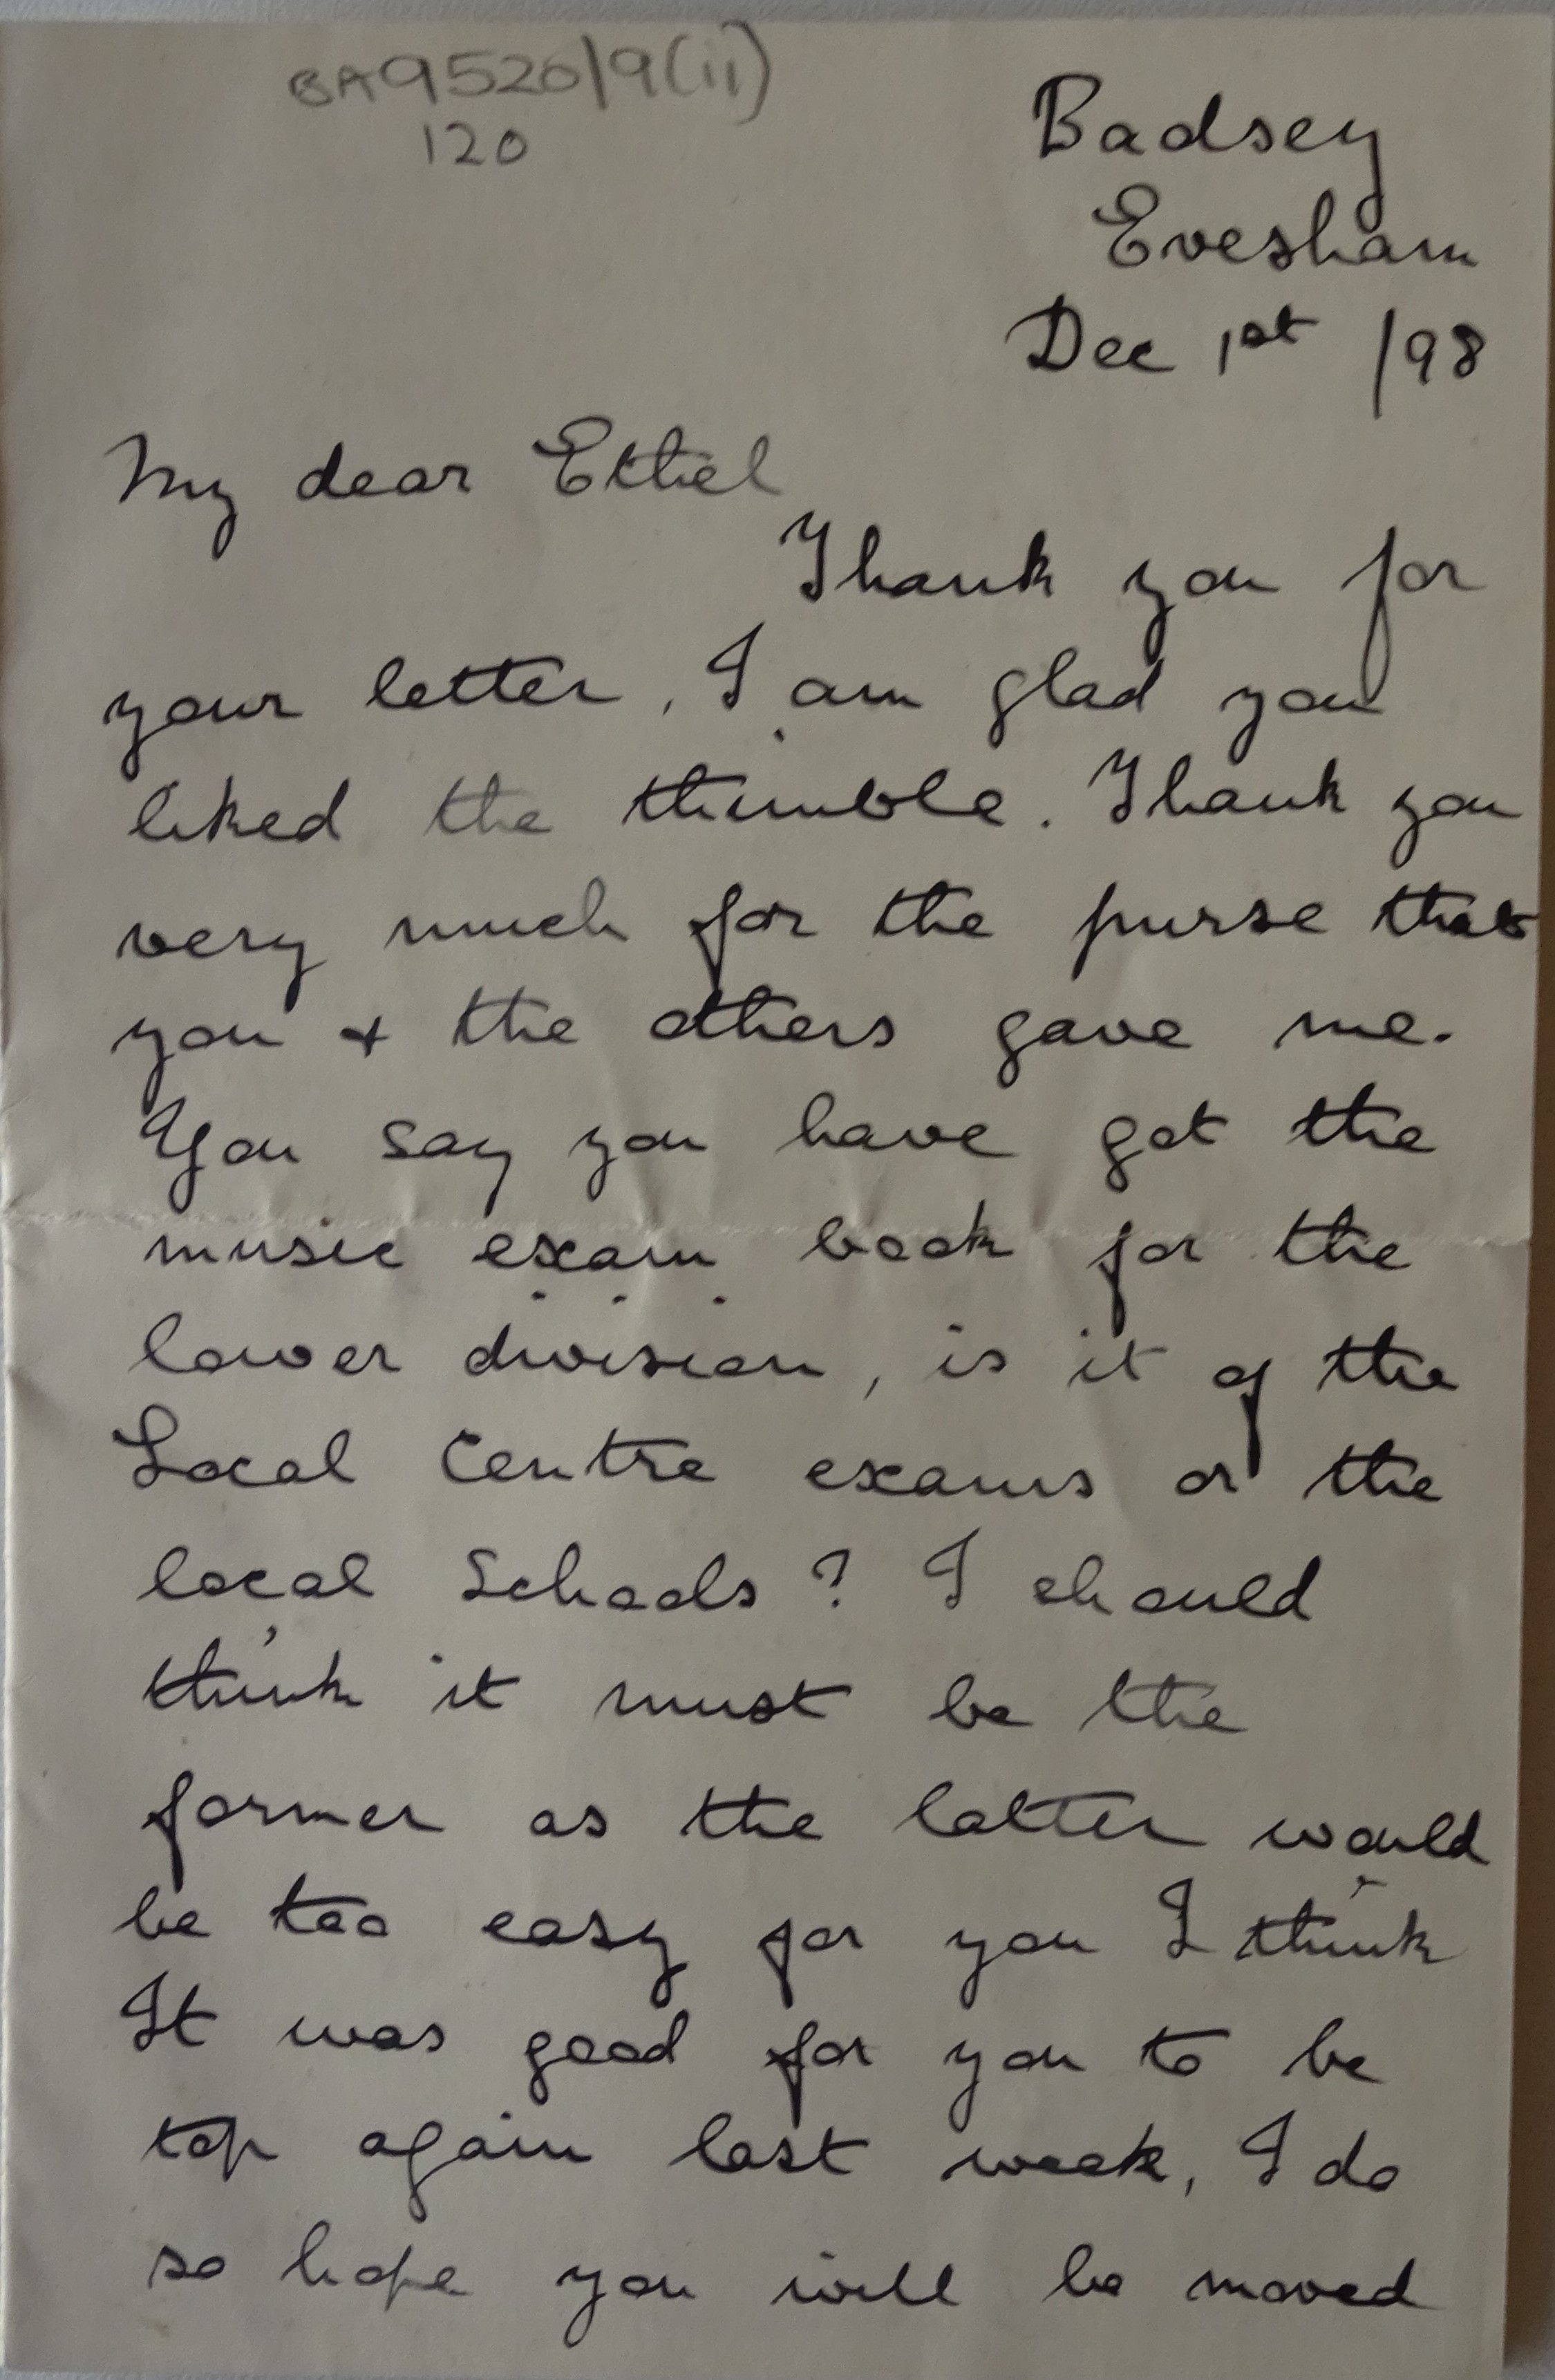 BA9520/9(ii)
120
Badsey
Evesham
Dec 1st /98
My dear Ethel
Thank you for
your letter, I am glad you
liked the thimble. Thank you
very much for the purse that
you & the others gave me.
You say you have got the
music exam book for the
lower division, is it of the
Local Centre exams or the
local Schools? I should
think it must be the
former as the latter would
be too easy for you I think
It was good for you to be
top again last week, I do
so hope you will be moved